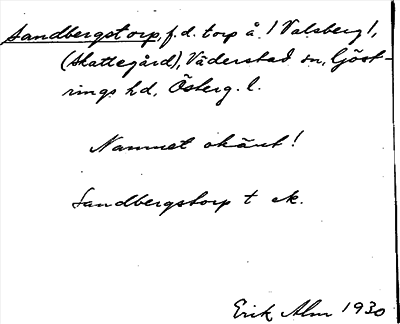 Sandbergstorp, f.d. torp å ! Valsberg !,
(Skattegård), Väderstad sn, Göst-
rings hd, Österg. l.
Namnet okänt!
Sandbergstorp t ek.
Erik Alm 1930